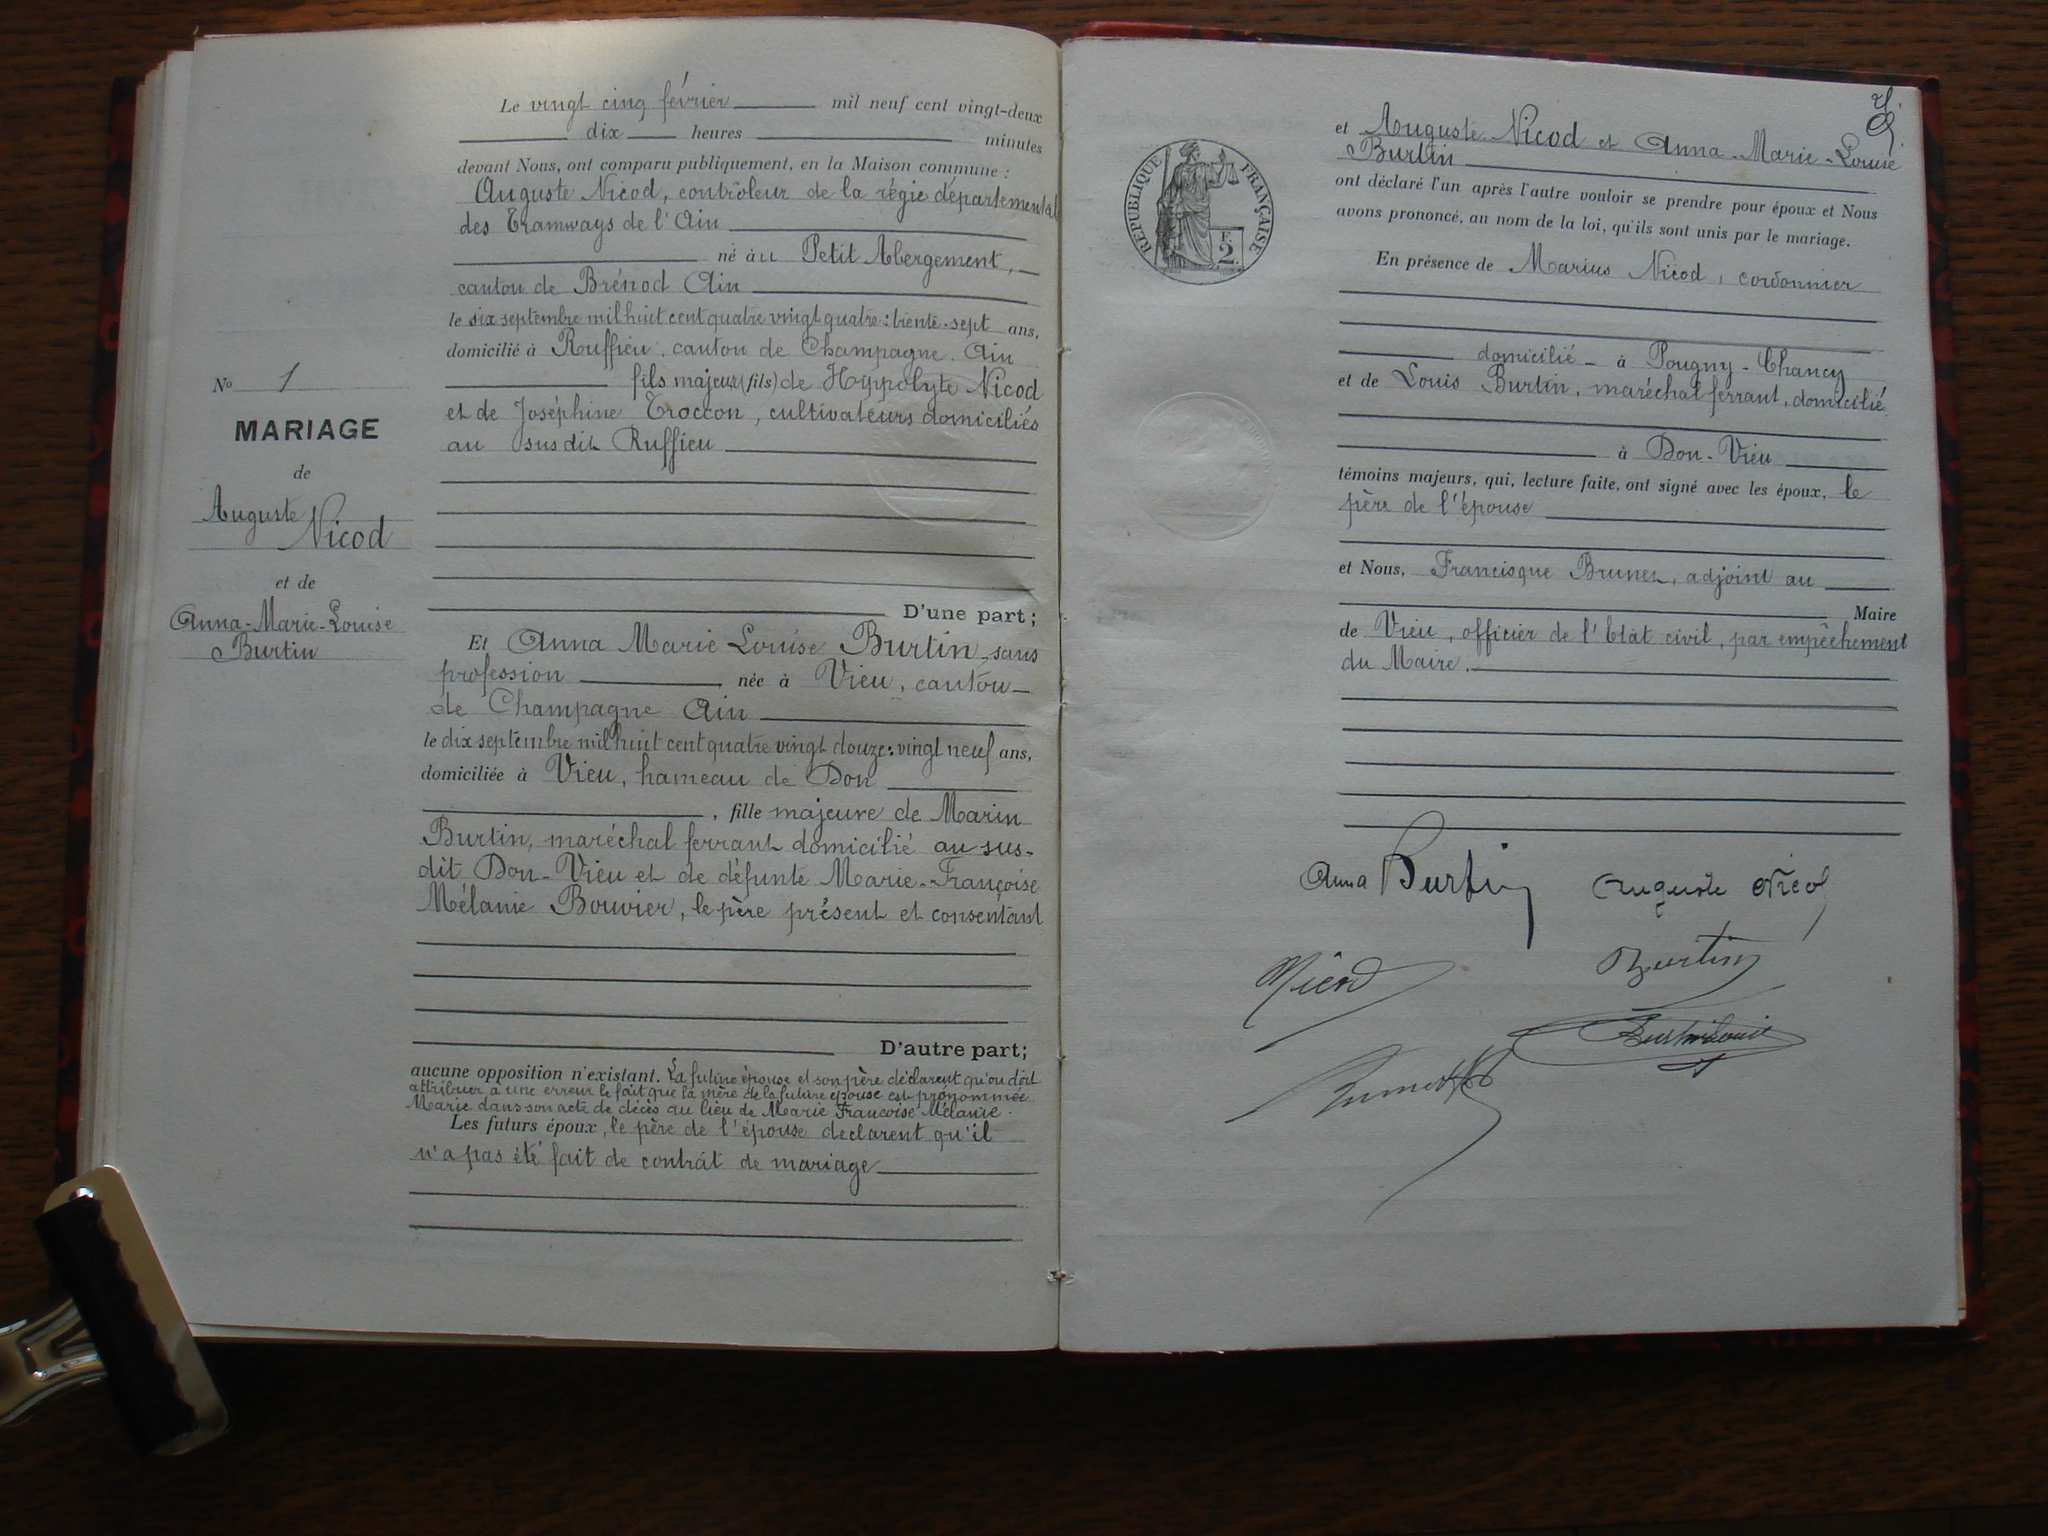 Le vingt cinq février mil neuf cent vingt-deux
dix heures minutes
devant Nous, ont comparu publiquement, en la Maison commune :
Auguste Nicod, contrôleur de la régie départemental
des Tramways de l'Ain
né à u Petit Abergement,
canton de Brénod Ain
le six septembre mil huit cent quatre vingt quatre : trente-sept ans,
domicilié à Ruffieu, canton de Champagne. Ain
fils majeur (fils) de Hyppolyte Nicod
et de Joséphine Troccon, cultivateurs domiciliés
au susdit Ruffieu
D'une part;
No 1
MARIAGE
de
Auguste
Nicod
et de
Anna-Marie-Louise
Burtin
Et Anna Marie Louise Burtin, sans
profession née à Vieu, canton
de Champagne Ain
le dix septembre mil huit cent quatre vingt douze : vingt neuf ans,
domiciliée à Vieu, hameau de Don
, fille majeure de Marin
Burtin, maréchal ferrant domicilié au sus-
dit Don-Vieu et de défunte Marie-Françoise
Mélanie Bouvier, le père présent et consentant
D'autre part;
aucune opposition n'existant. La future épouse et son père déclarent qu'on doit
attribuer à une erreur le fait que la mère de la future épouse est prénommée
Marie dans son acte de décès au lieu de Marie Françoise Mélanie.
Les futurs époux, le père de l'épouse déclarent qu'il
n'a pas été fait de contrat de mariage
RÉPUBLIQUE FRANÇAISE
F.
2.
et Auguste Nicod et Anna-Marie-Louise
Burtin
ont déclaré l'un après l'autre vouloir se prendre pour époux et Nous
avons prononcé, au nom de la loi, qu'ils sont unis par le mariage.
En présence de Marius Nicod, cordonnier
domicilié à Pougny-Chancy
et de Louis Burtin, maréchal ferrant, domicilié
à Don-Vieu
témoins majeurs, qui, lecture faite, ont signé avec les époux, le
père de l'épouse
et Nous, Francisque Brunet, adjoint au
Maire
de Vieu, officier de l'Etat civil, par empêchement
du Maire.
Anna Burtin Auguste Nicod
Nicod Burtin
Burtin Louis
Brunet